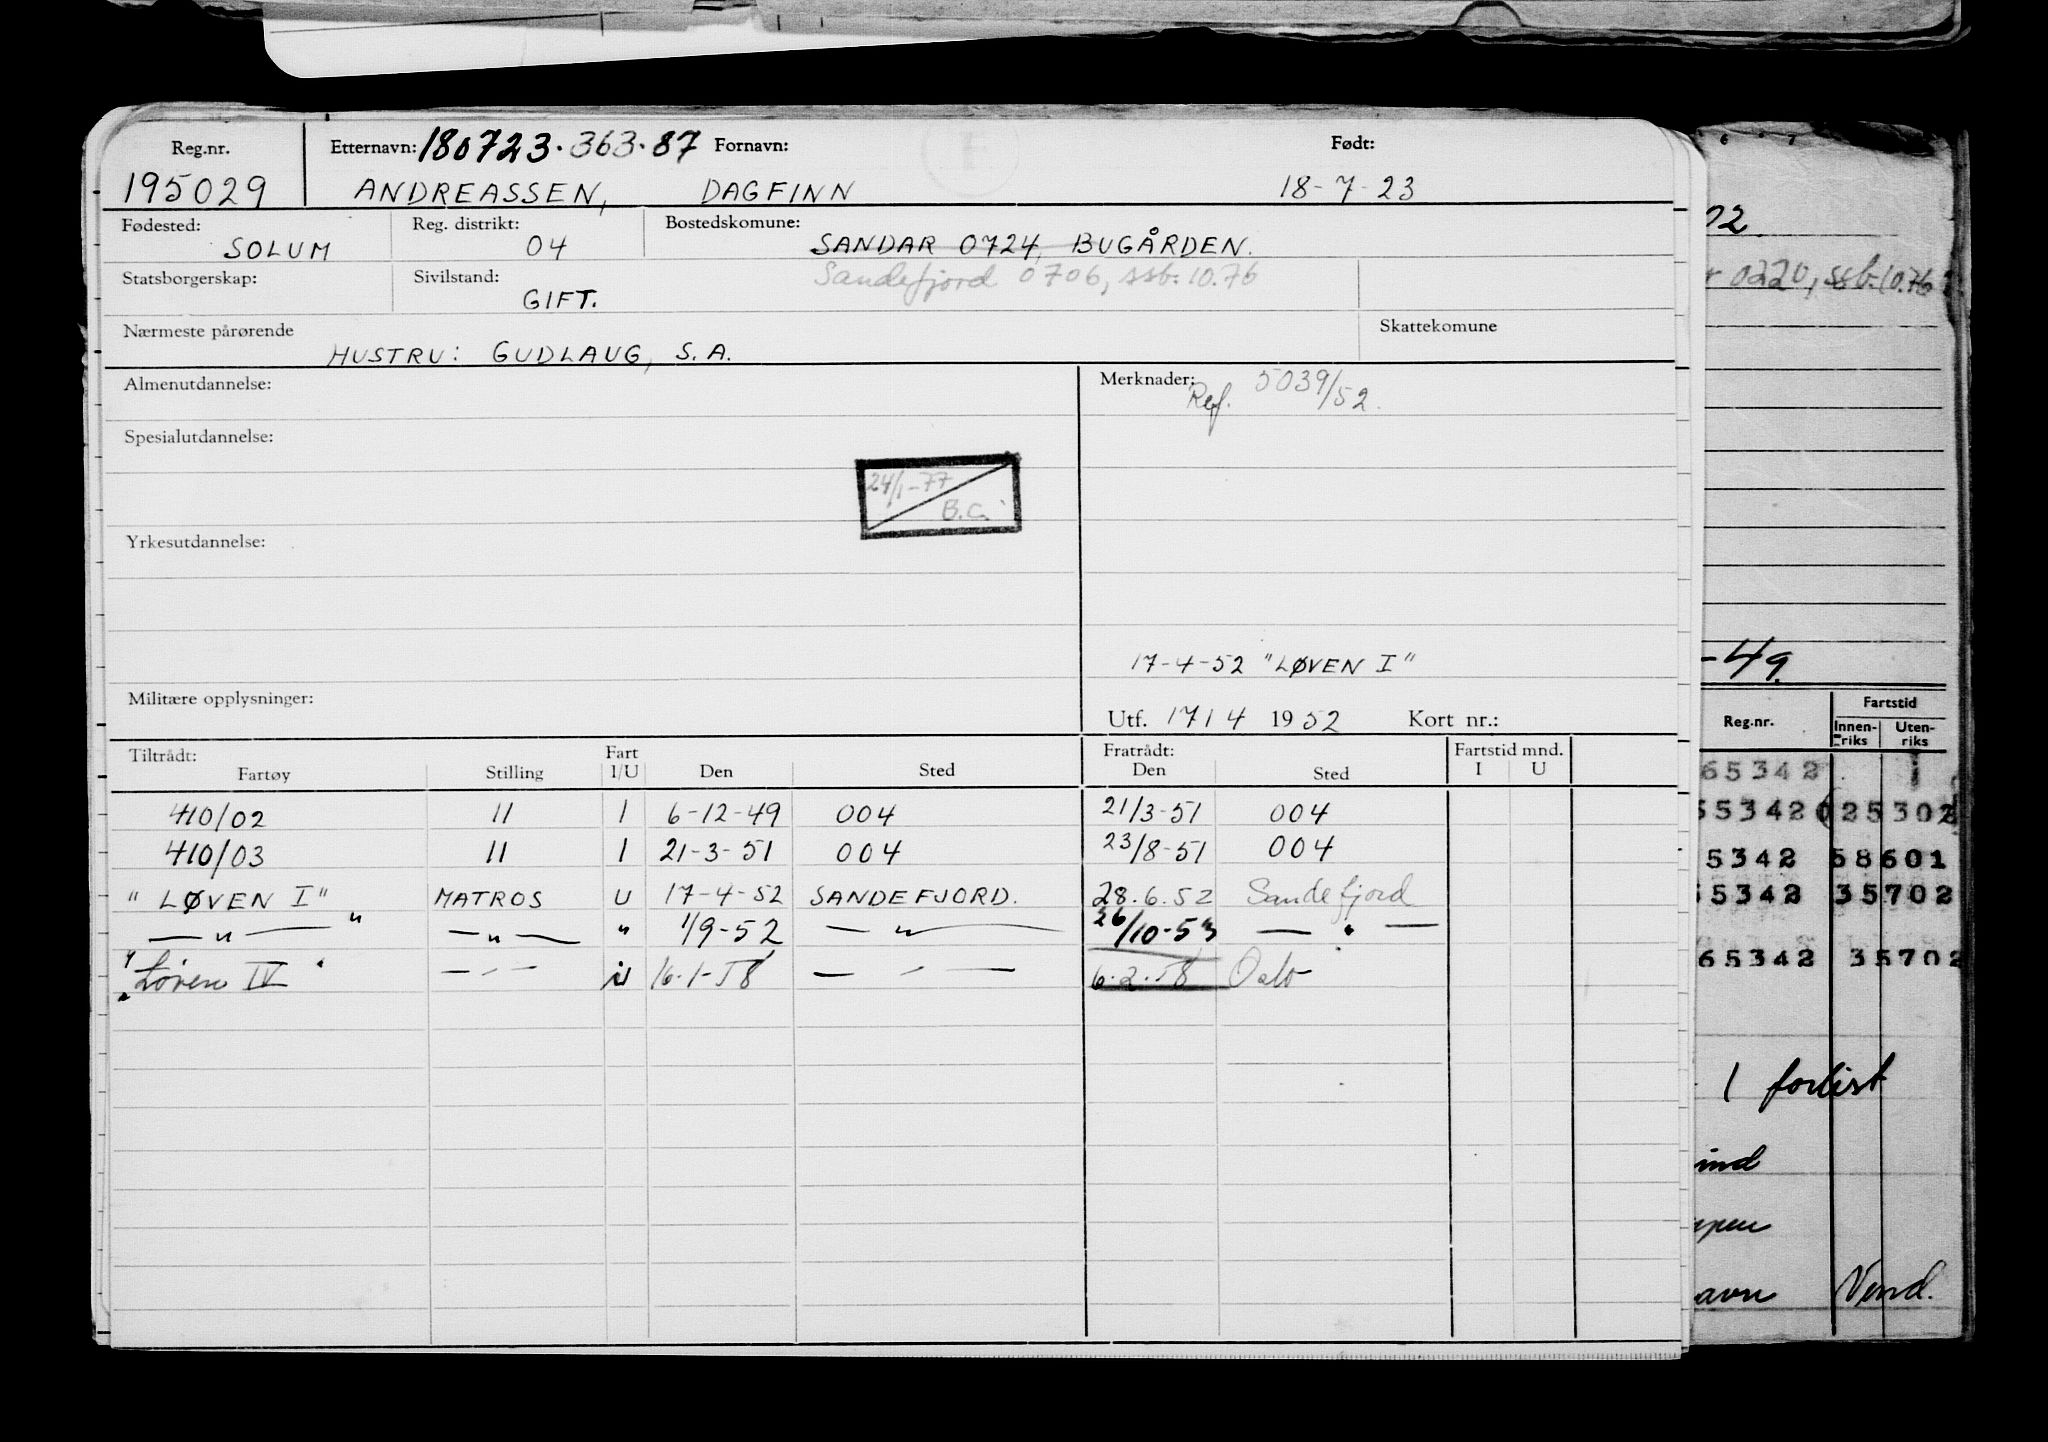 Reg.nr. Etternavn: 180723.363.87 Fornavn: Født:
195029 ANDREASSEN, DAGFINN 18-7-23
Fødested: Reg. distrikt: Bostedskomune:
SOLUM 04 SANDAR 0724, BUGÅRDEN.
Statsborgerskap: Sivilstand: Sandefjord 0706, ssb. 10.76
GIFT.
Nærmeste pårørende Skattekomune
HUSTRU: GUDLAUG, S.A.
Almenutdannelse: Merknader: Ref. 5039/52.
Spesialutdannelse:
24/1-77
B.C.
Yrkesutdannelse:
17-4-52 "LØVEN I"
Militære opplysninger: Utf. 17/4 1952 Kort nr.:
Tiltrådt: Fart Fratrådt: Fartstid mnd.
Fartøy Stilling I/U Den Sted Den Sted I U
410/02 11 1 6-12-49 004 21/3-51 004
410/03 11 1 21-3-51 004 23/8-51 004
"LØVEN I" MATROS U 17-4-52 SANDEFJORD. 28.6.52 Sandefjord
— " — " — " — " 1/9-52 — " — 26/10-53 — " —
"Løven IV" — " — U 16-1-58 — " — 6.2.58 Oslo
02.
0220, ssb. 10.76
-49.
Reg.nr. Fartstid
Innen-riks Uten-riks
65342 1
55342 25302
5342 58601
5342 35702
65342 35702
1 forlist
ind
avn Vend.